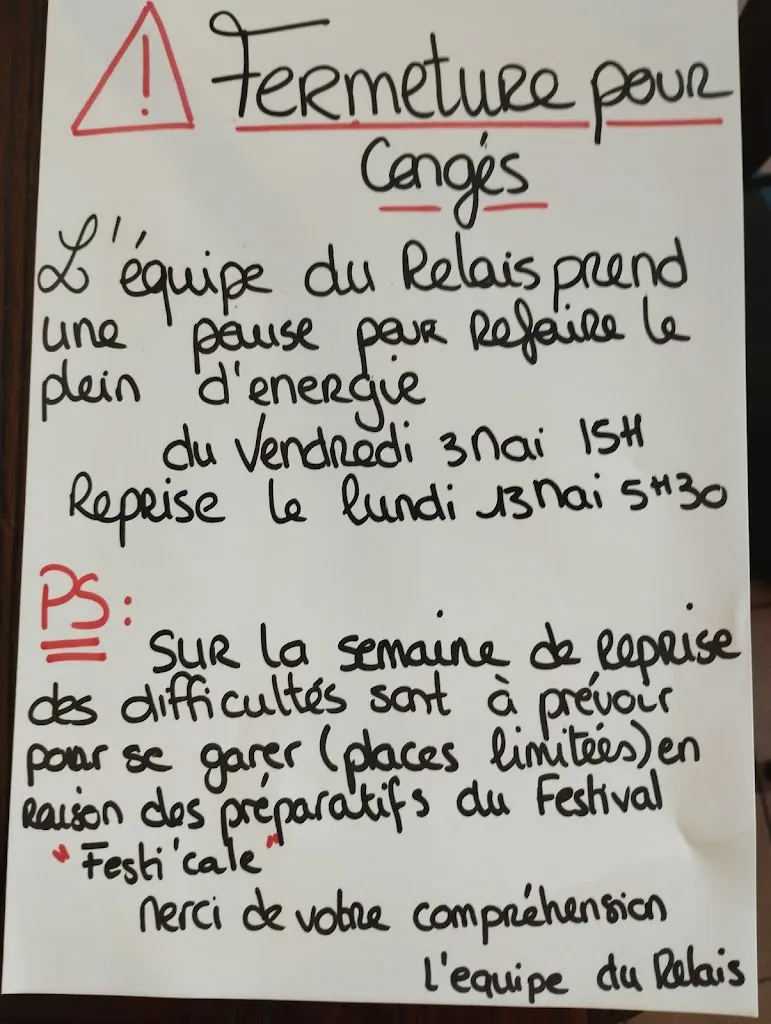 ! Fermeture pour
Congés
L'équipe du Relais prend
une pause pour Refaire le
plein d'energie
du Vendredi 3 Mai 15H
Reprise le lundi 13 Mai 5H30
PS:
SUR la semaine de reprise
des difficultés sont à prévoir
pour se garer (places limitées) en
raison des préparatifs du Festival
"Festi'cale"
Merci de votre compréhension
L'equipe du Relais